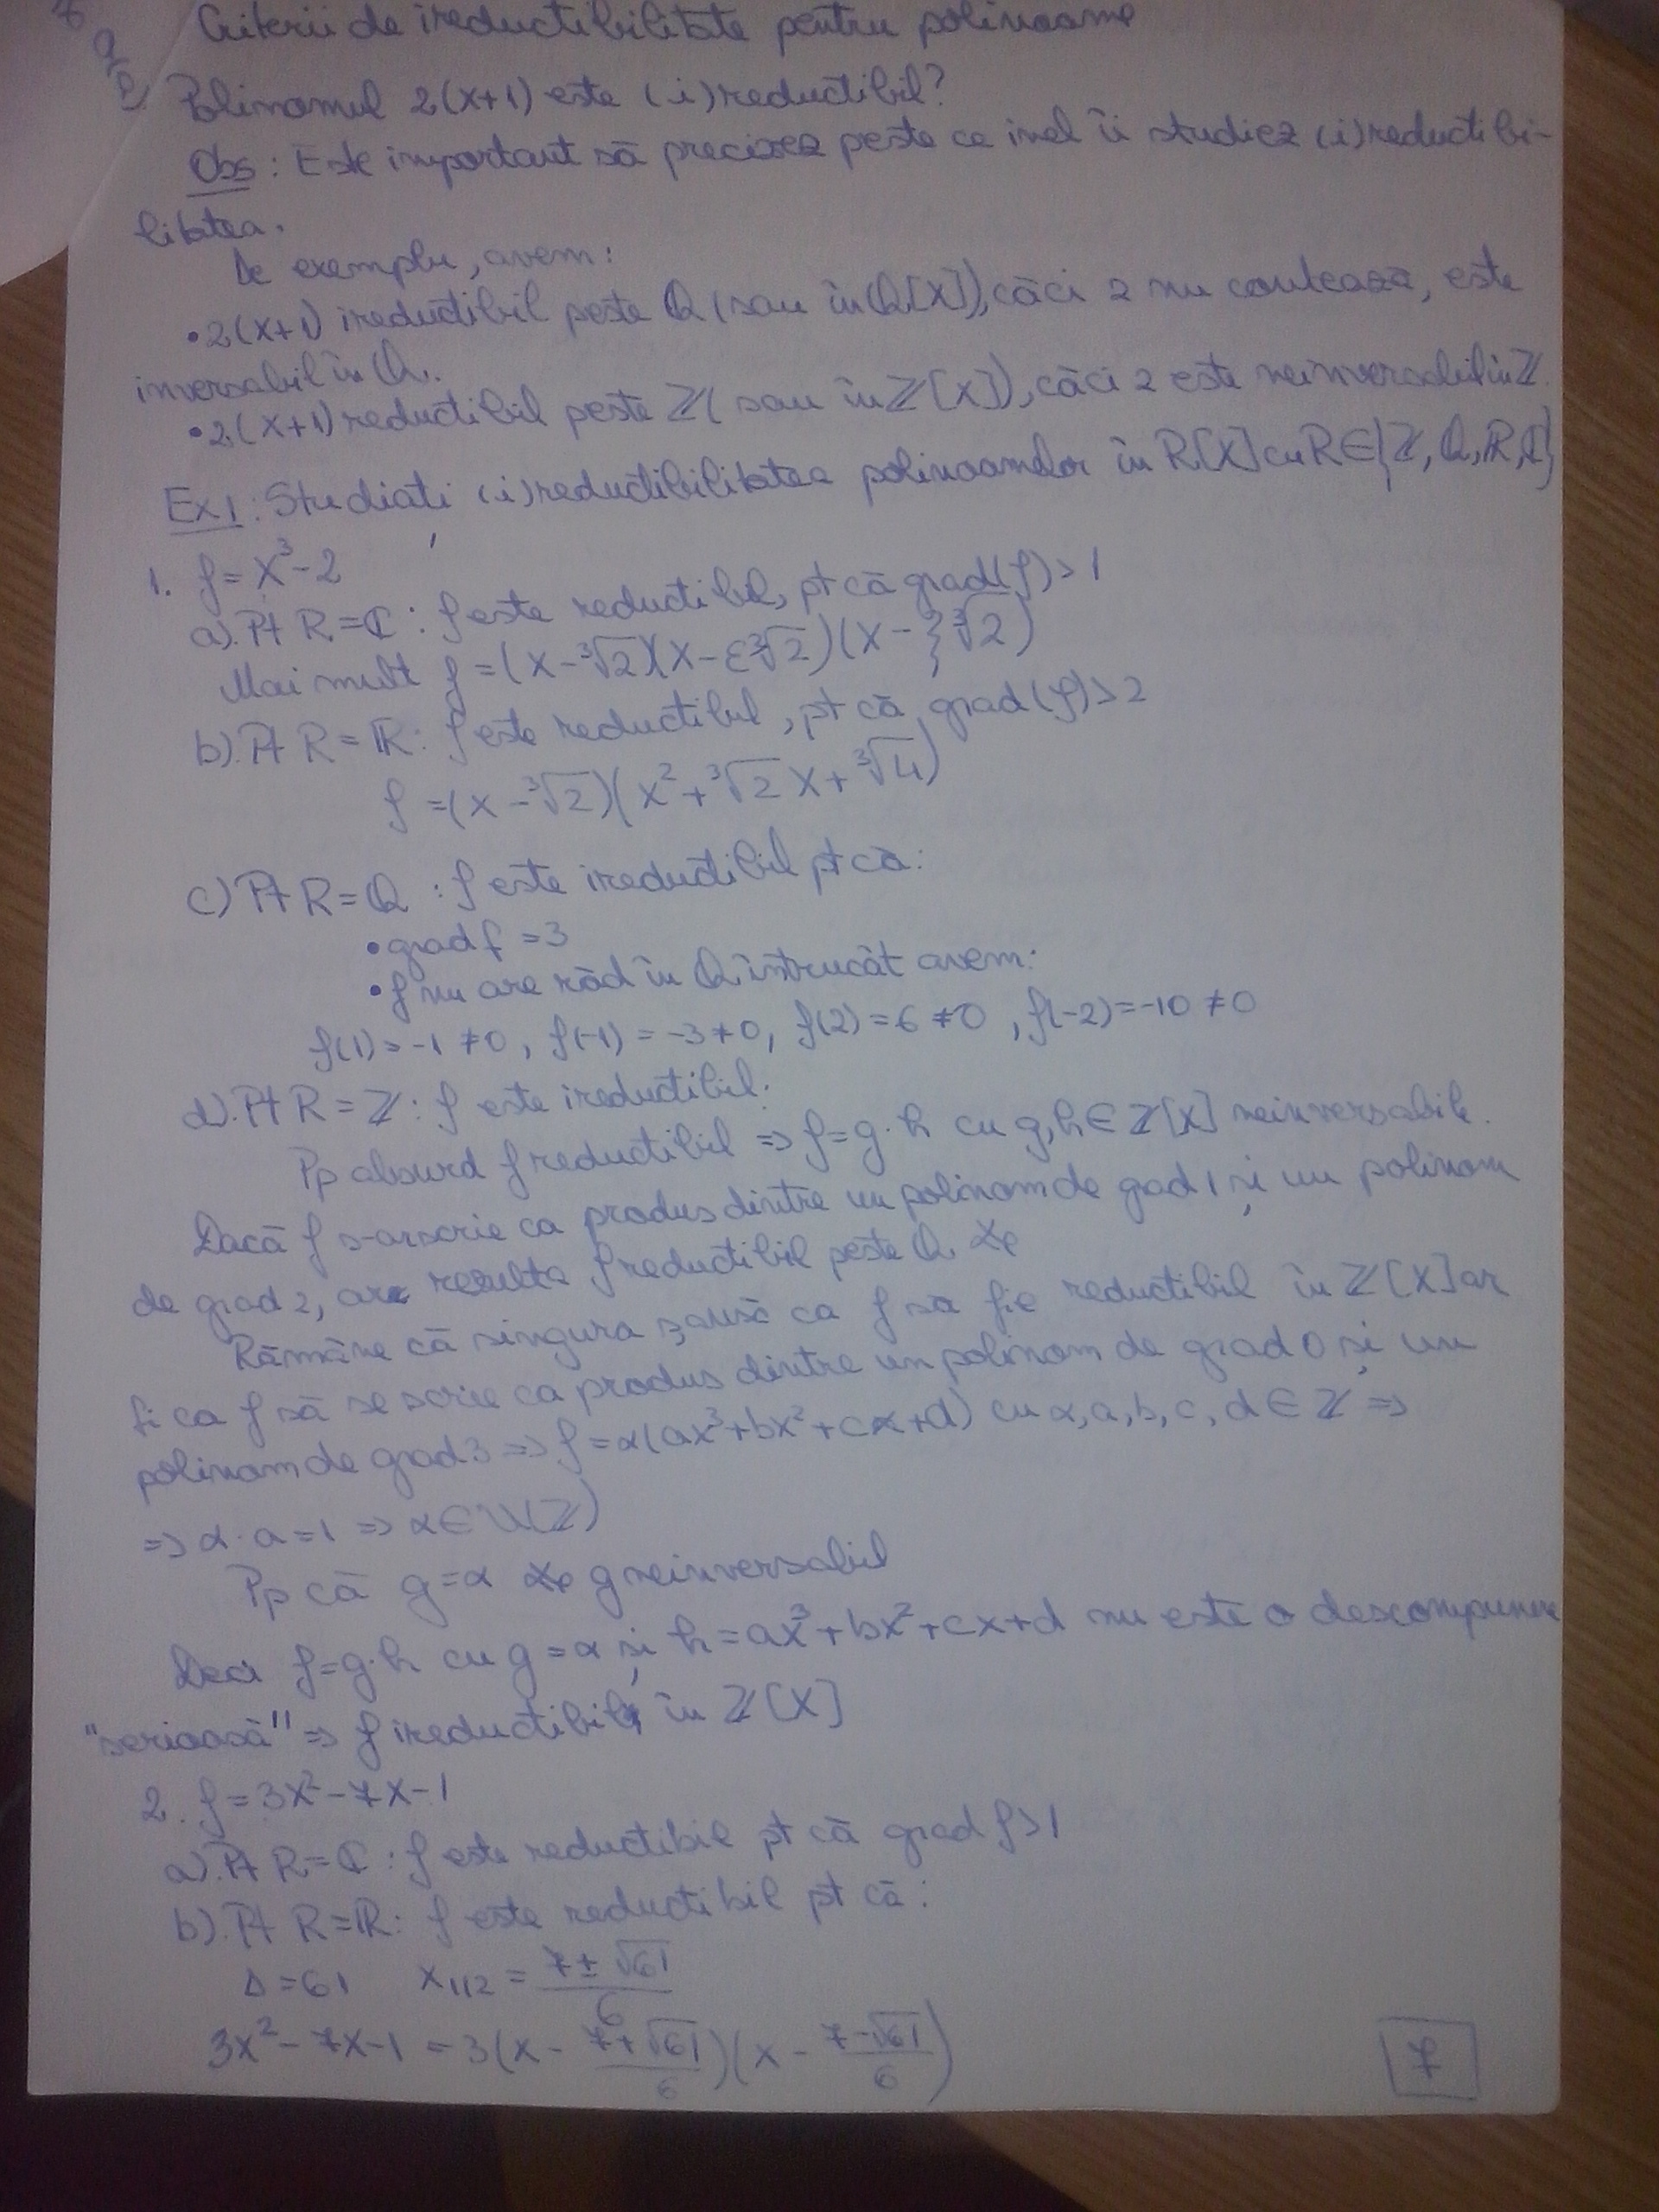 Criterii de ireductibilitate pentru polinoame
Polinomul 2(x+1) este (i)reductibil?
Obs: Este important să precizez peste ce inel îi studiez (i)reductibi-
litatea.
De exemplu, avem:
• 2(x+1) ireductibil peste ℚ (sau în ℚ[X]), căci 2 nu contează, este
inversabil în ℚ.
• 2(x+1) reductibil peste ℤ (sau în ℤ[X]), căci 2 este neinversabil în ℤ.
Ex1: Studiați (i)reductibilitatea polinoamelor în R[X] cu R∈{ℤ, ℚ, ℝ, ℂ}
1. f = X³-2
a). Pt R=ℂ: f este reductibil, pt că grad(f)>1
Mai mult f=(x-∛2)(x-ε∛2)(x-ξ∛2)
b). Pt R=ℝ: f este reductibil, pt că grad(f)>2
f=(x-∛2)(x²+∛2x+∛4)
c) Pt R=ℚ: f este ireductibil pt că:
• grad f =3
• f nu are răd în ℚ întrucât avem:
f(1)=-1≠0, f(-1)=-3≠0, f(2)=6≠0, f(-2)=-10≠0
d). Pt R=ℤ: f este ireductibil.
Pp absurd f reductibil => f=g·h cu g,h∈ℤ[X] neinversabile.
Dacă f s-ar scrie ca produs dintre un polinom de grad 1 și un polinom
de grad 2, ar rezulta f reductibil peste ℚ
Rămâne că singura șansă ca f să fie reductibil în ℤ[X] ar
fi ca f să se scrie ca produs dintre un polinom de grad 0 și un
polinom de grad 3 => f=α(ax³+bx²+cx+d) cu α,a,b,c,d∈ℤ =>
=> α·a=1 => α∈U(ℤ)
Pp că g=α g neinversabil
Deci f=g·h cu g=α și h=ax³+bx²+cx+d nu este o descompunere
"serioasă" => f ireductibil în ℤ[X]
2. f=3x²-7x-1
a). Pt R=ℂ: f este reductibil pt că grad f>1
b). Pt R=ℝ: f este reductibil pt că:
Δ=61 x₁,₂ = (7±√61)/6
3x²-7x-1 = 3(x - (7+√61)/6)(x - (7-√61)/6)
7